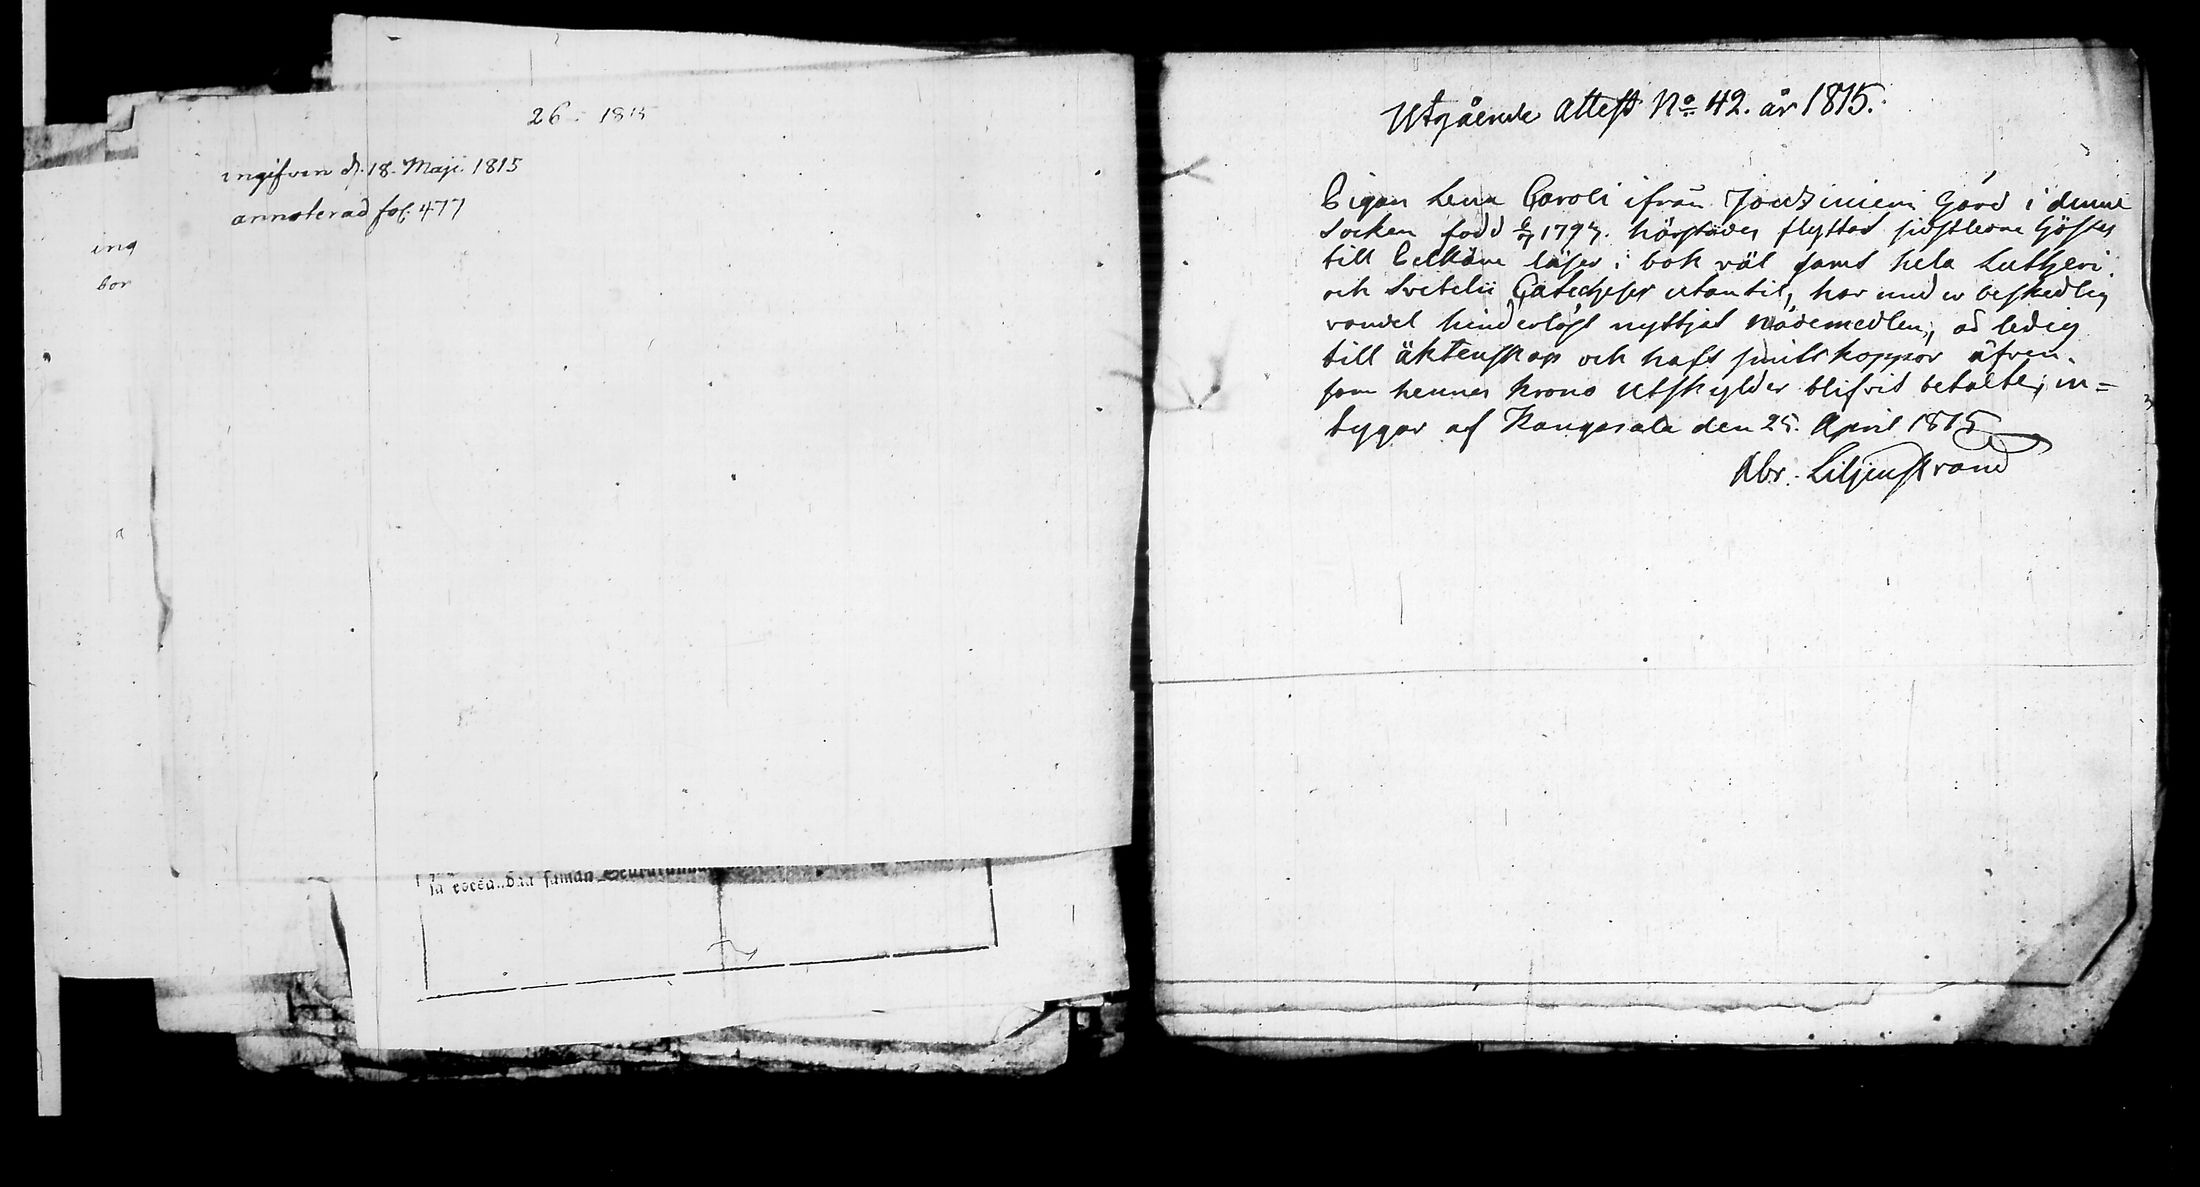 26 - 1815
ingifven d. 18. Maji 1815
annoterad fol. 477
ing
bor
Utgående Attest No 42. år 1815.
Pigan Lena Caroli ifrån Joutziniemi Gård i denne
Socken född 1797. härstädes flyttad sidstledne Höstes
till Pelkäne läser i bok väl samt hela Lutheri
och Svebelii Cateches utantil, har under beskedlig
vandel hinderlöst nyttjat nådemedlen, är ledig
till äktenskap och haft smittkoppor äfven-
som hennes krono utskylder blifvit betalte; in=
tygar af Kangasala den 25. April 1815
Abr. Liljenstrand